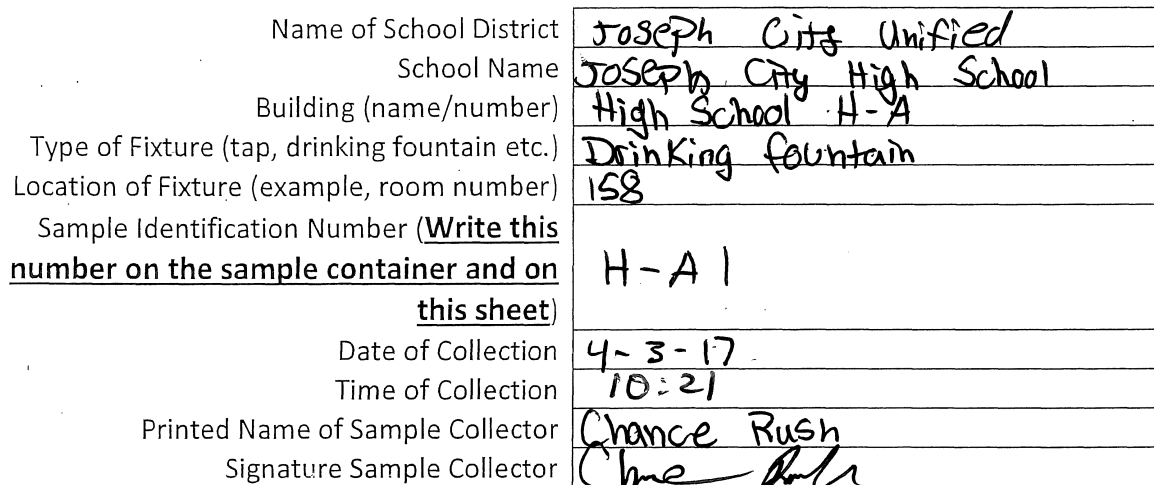 Name of School District Joseph City Unified
School Name Joseph City High School
Building (name/number) High School H-A
Type of Fixture (tap, drinking fountain etc.) Drinking fountain
Location of Fixture (example, room number) 158
Sample Identification Number (Write this
number on the sample container and on
this sheet) H-A 1
Date of Collection 4-3-17
Time of Collection 10:21
Printed Name of Sample Collector Chance Rush
Signature Sample Collector